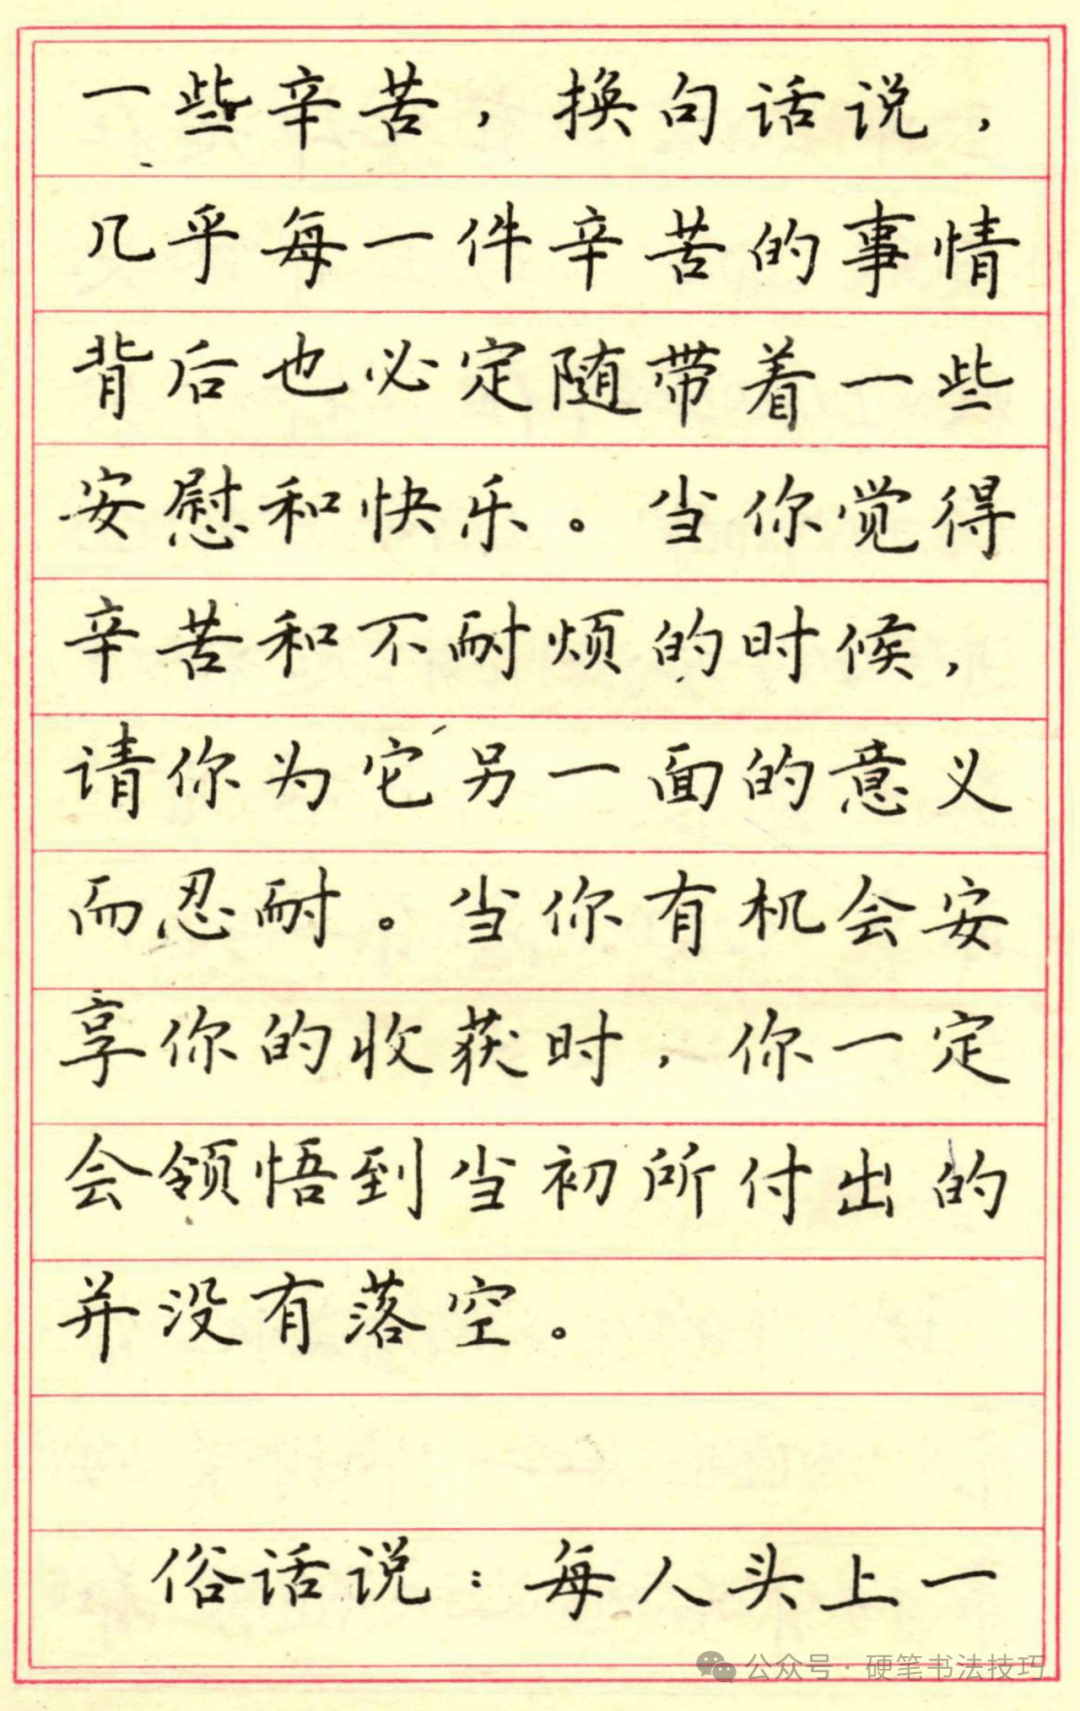 一些辛苦，换句话说，
几乎每一件辛苦的事情
背后也必定随带着一些
安慰和快乐。当你觉得
辛苦和不耐烦的时候，
请你为它另一面的意义
而忍耐。当你有机会安
享你的收获时，你一定
会领悟到当初所付出的
并没有落空。
俗话说：每人头上一
公众号·硬笔书法技巧